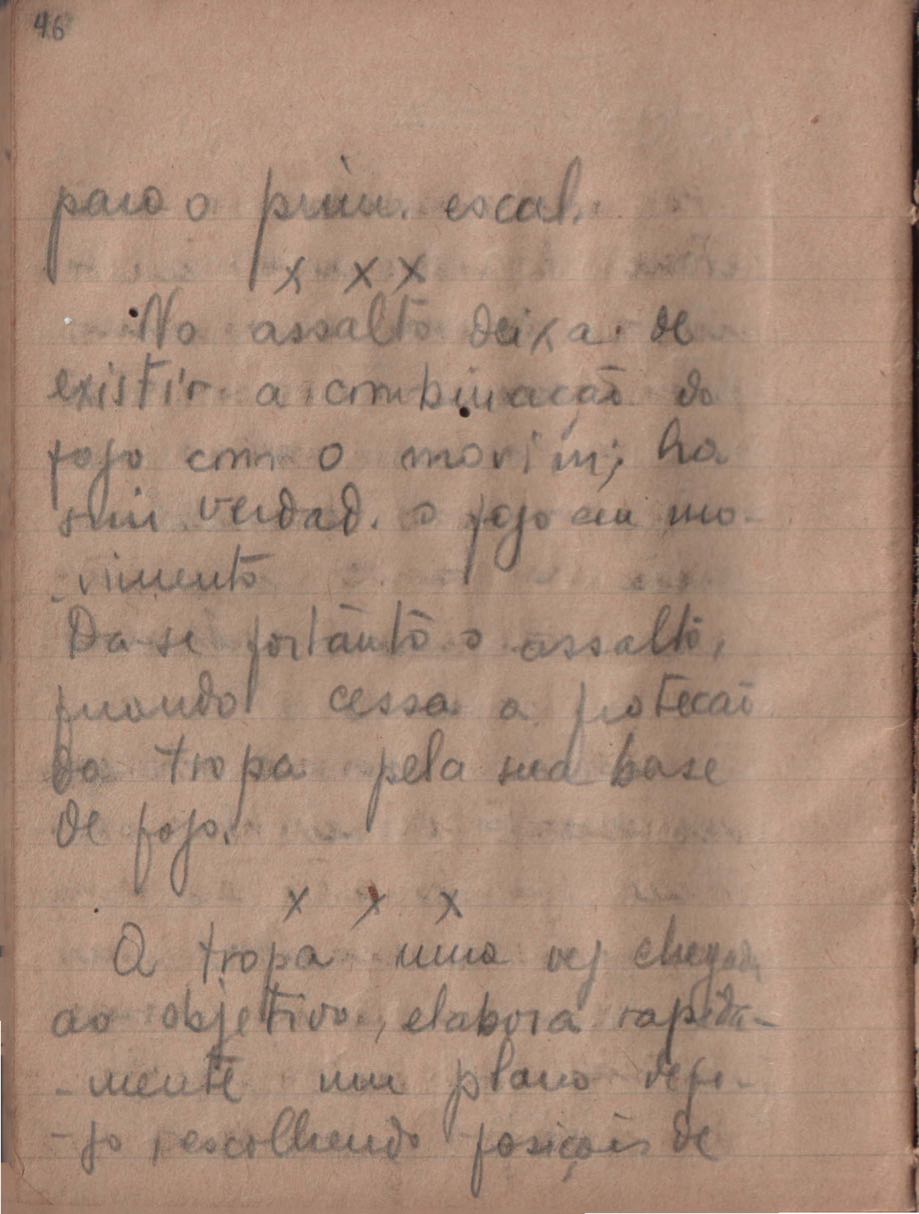 46
para o prim. escal.
x x x
No assalto deixa de
existir a combinação do
fogo com o movim; ha
sim verdad. o fogo em mo-
-vimento
Da-se portanto o assalto,
quando cessa a protecão
da tropa pela sua base
de fogo.
x x x
A tropa uma vez chegada
ao objetivo, elabora rapida-
-mente um plano de fo-
-go, escolhendo posições de